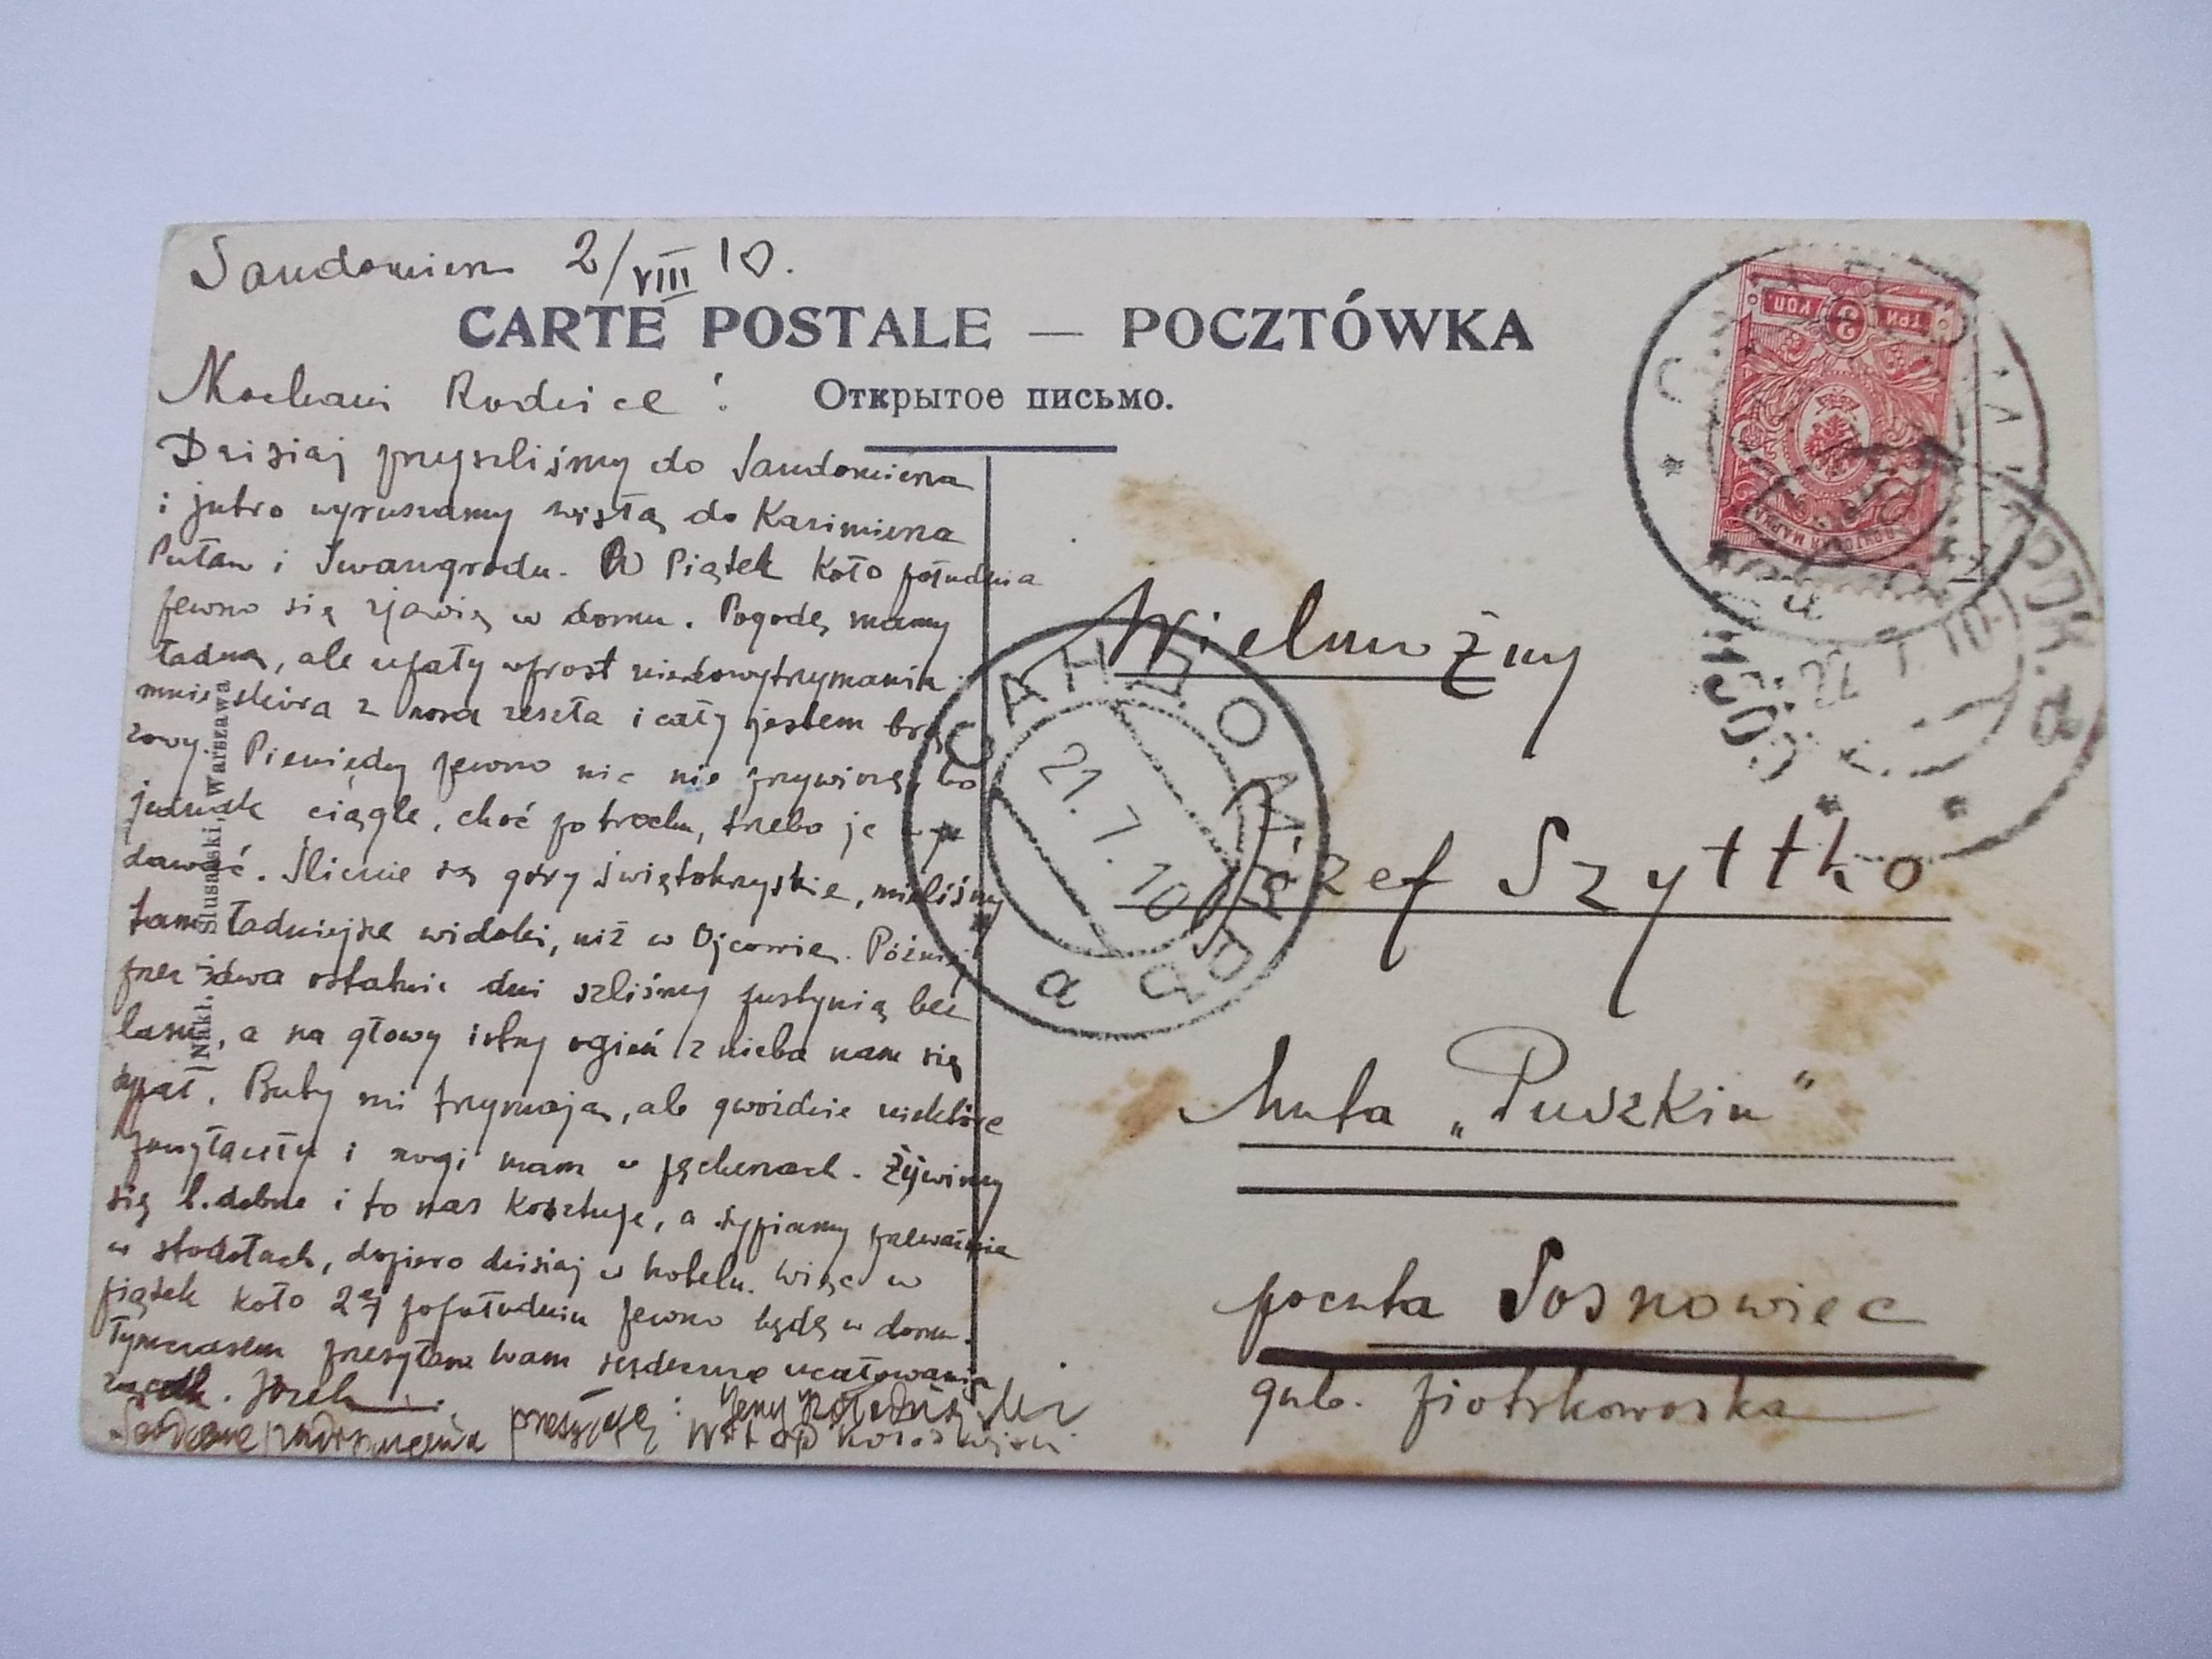 Sandomierz 2/VIII 10.
CARTE POSTALE — POCZTÓWKA
Открытое письмо.
Kochani Rodzice!
Dzisiaj przyszliśmy do Sandomierza
i jutro wyruszamy Wisłą do Kazimierza
Puław i Iwangrodu. W Piątek koło południa
pewno się zjawię w domu. Pogodę mamy
ładną, ale upały wprost niedowytrzymania
mnie skóra z nosa zeszła i cały jestem brą
zowy. Pieniędzy pewno nic nie przywiozę, bo
jednak ciągle, choć po trochu, trzeba je wy
dawać. Ślicznie są góry Świętokrzyskie, mieliśmy
tam ładniejsze widoki, niż w Ojcowie. Później
przez dwa ostatnie dni szliśmy pustynią bez
lasu, a na głowy istny ogień z nieba nam się
sypał. Buty mi trzymają, ale gwoździe niektóre
powyłaziły i nogi mam w pęcherzach. Żywimy
się b. dobrze i to nas kosztuje, a sypiamy przeważnie
w stodołach, dopiero dzisiaj w hotelu. Więc w
piątek koło 2ej popołudniu pewno będę w domu.
Tymczasem przesyłam Wam serdeczne ucałowania
Józek.
Serdeczne pozdrowienia przesyłają: Jerzy
Nakł. Slusarski, Warszawa
Wielmożny
Józef Szyttko
huta „Puszkin"
poczta Sosnowiec
gub. piotrkowska
САНДОМИРЪ
21.7.10
а
ТРИ КОП
3
ПОЧТОВАЯ МАРКА
22.7.10